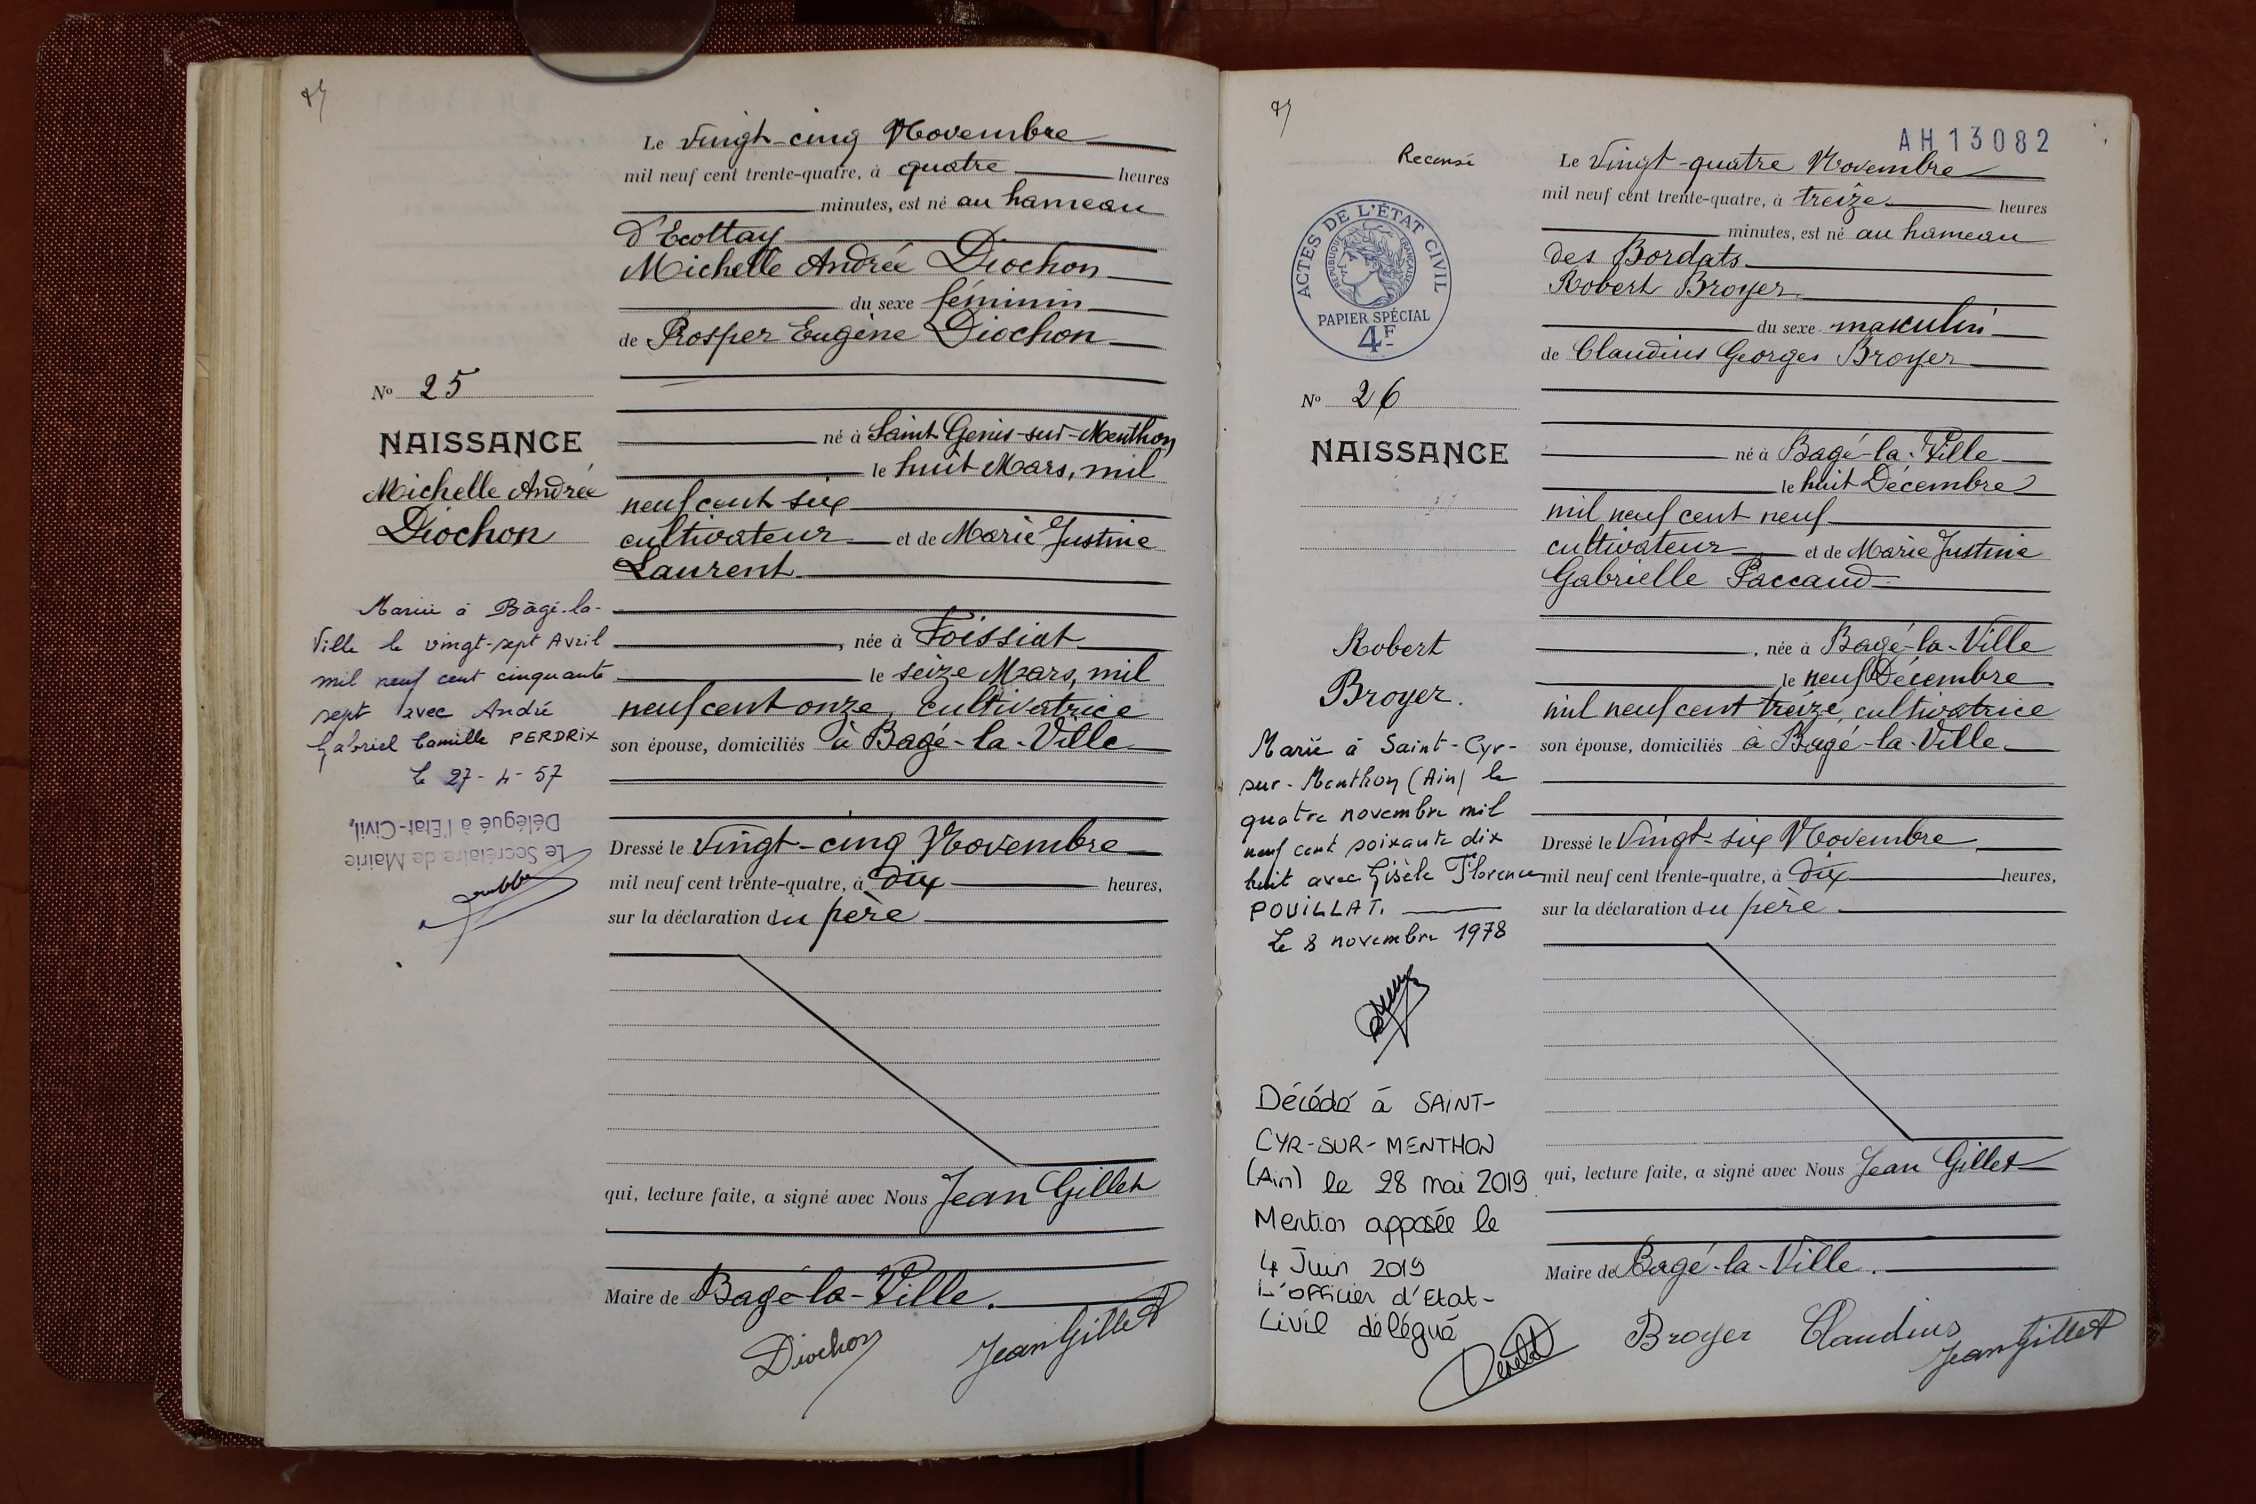 Le Vingt-cinq Novembre
mil neuf cent trente-quatre, à quatre heures
minutes, est né au hameau
d'Ecottay
Michelle Andrée Diochon
du sexe féminin
de Prosper Eugène Diochon
né à Saint Genis-sur-Menthon
le huit Mars, mil
neuf cent six
cultivateur et de Marie Justine
Laurent
, née à Foissiat
le seize Mars, mil
neuf cent onze, cultivatrice
son épouse, domiciliés à Bagé-la-Ville
Dressé le Vingt-cinq Novembre
mil neuf cent trente-quatre, à dix heures,
sur la déclaration du père
qui, lecture faite, a signé avec Nous Jean Gillet
Maire de Bagé-la-Ville.
Diochon
Jean Gillet
No 25
NAISSANCE
Michelle Andrée
Diochon
Mariée à Bâgé-la-
Ville le vingt-sept Avril
mil neuf cent cinquante
sept avec André
Gabriel Camille PERDRIX
Le 27-4-57
Le Secrétaire de Mairie
Délégué à l'Etat-Civil,
AH 13082
Recensé
ACTES DE L'ÉTAT CIVIL
RÉPUBLIQUE FRANÇAISE
PAPIER SPÉCIAL
4F
Le Vingt-quatre Novembre
mil neuf cent trente-quatre, à treize heures
minutes, est né au hameau
des Bordats
Robert Broyer
du sexe masculin
de Claudius Georges Broyer
né à Bagé-la-Ville
le huit Décembre
mil neuf cent neuf
cultivateur et de Marie Justine
Gabrielle Paccaud
, née à Bagé-la-Ville
le neuf Décembre
mil neuf cent treize, cultivatrice
son épouse, domiciliés à Bagé-la-Ville
Dressé le Vingt-six Novembre
mil neuf cent trente-quatre, à dix heures,
sur la déclaration du père
qui, lecture faite, a signé avec Nous Jean Gillet
Maire de Bagé-la-Ville.
Broyer Claudius
Jean Gillet
No 26
NAISSANCE
Robert
Broyer.
Marié à Saint-Cyr-
sur-Menthon (Ain) le
quatre novembre mil
neuf cent soixante dix
huit avec Gisèle Florence
POUILLAT.
Le 8 novembre 1978
Décédé à SAINT-
CYR-SUR-MENTHON
(Ain) le 28 mai 2019
Mention apposée le
4 Juin 2019
L'officier d'Etat-
Civil délégué